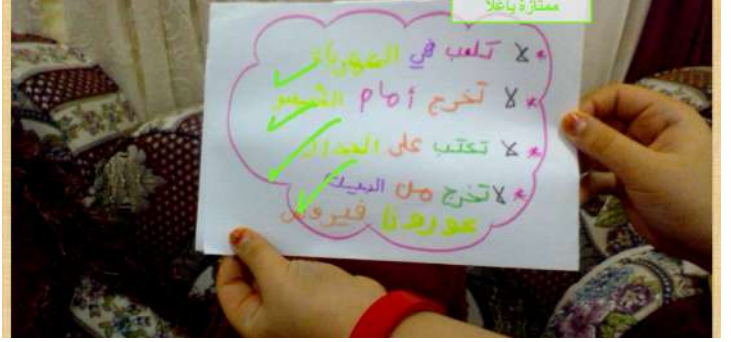 ممتازة ياغلا
* لا تلعب في الكهرباء
* لا تخرج أمام الشمس
* لا تكتب على الجدار
* لا تخرج من البيت
كورونا فيروس